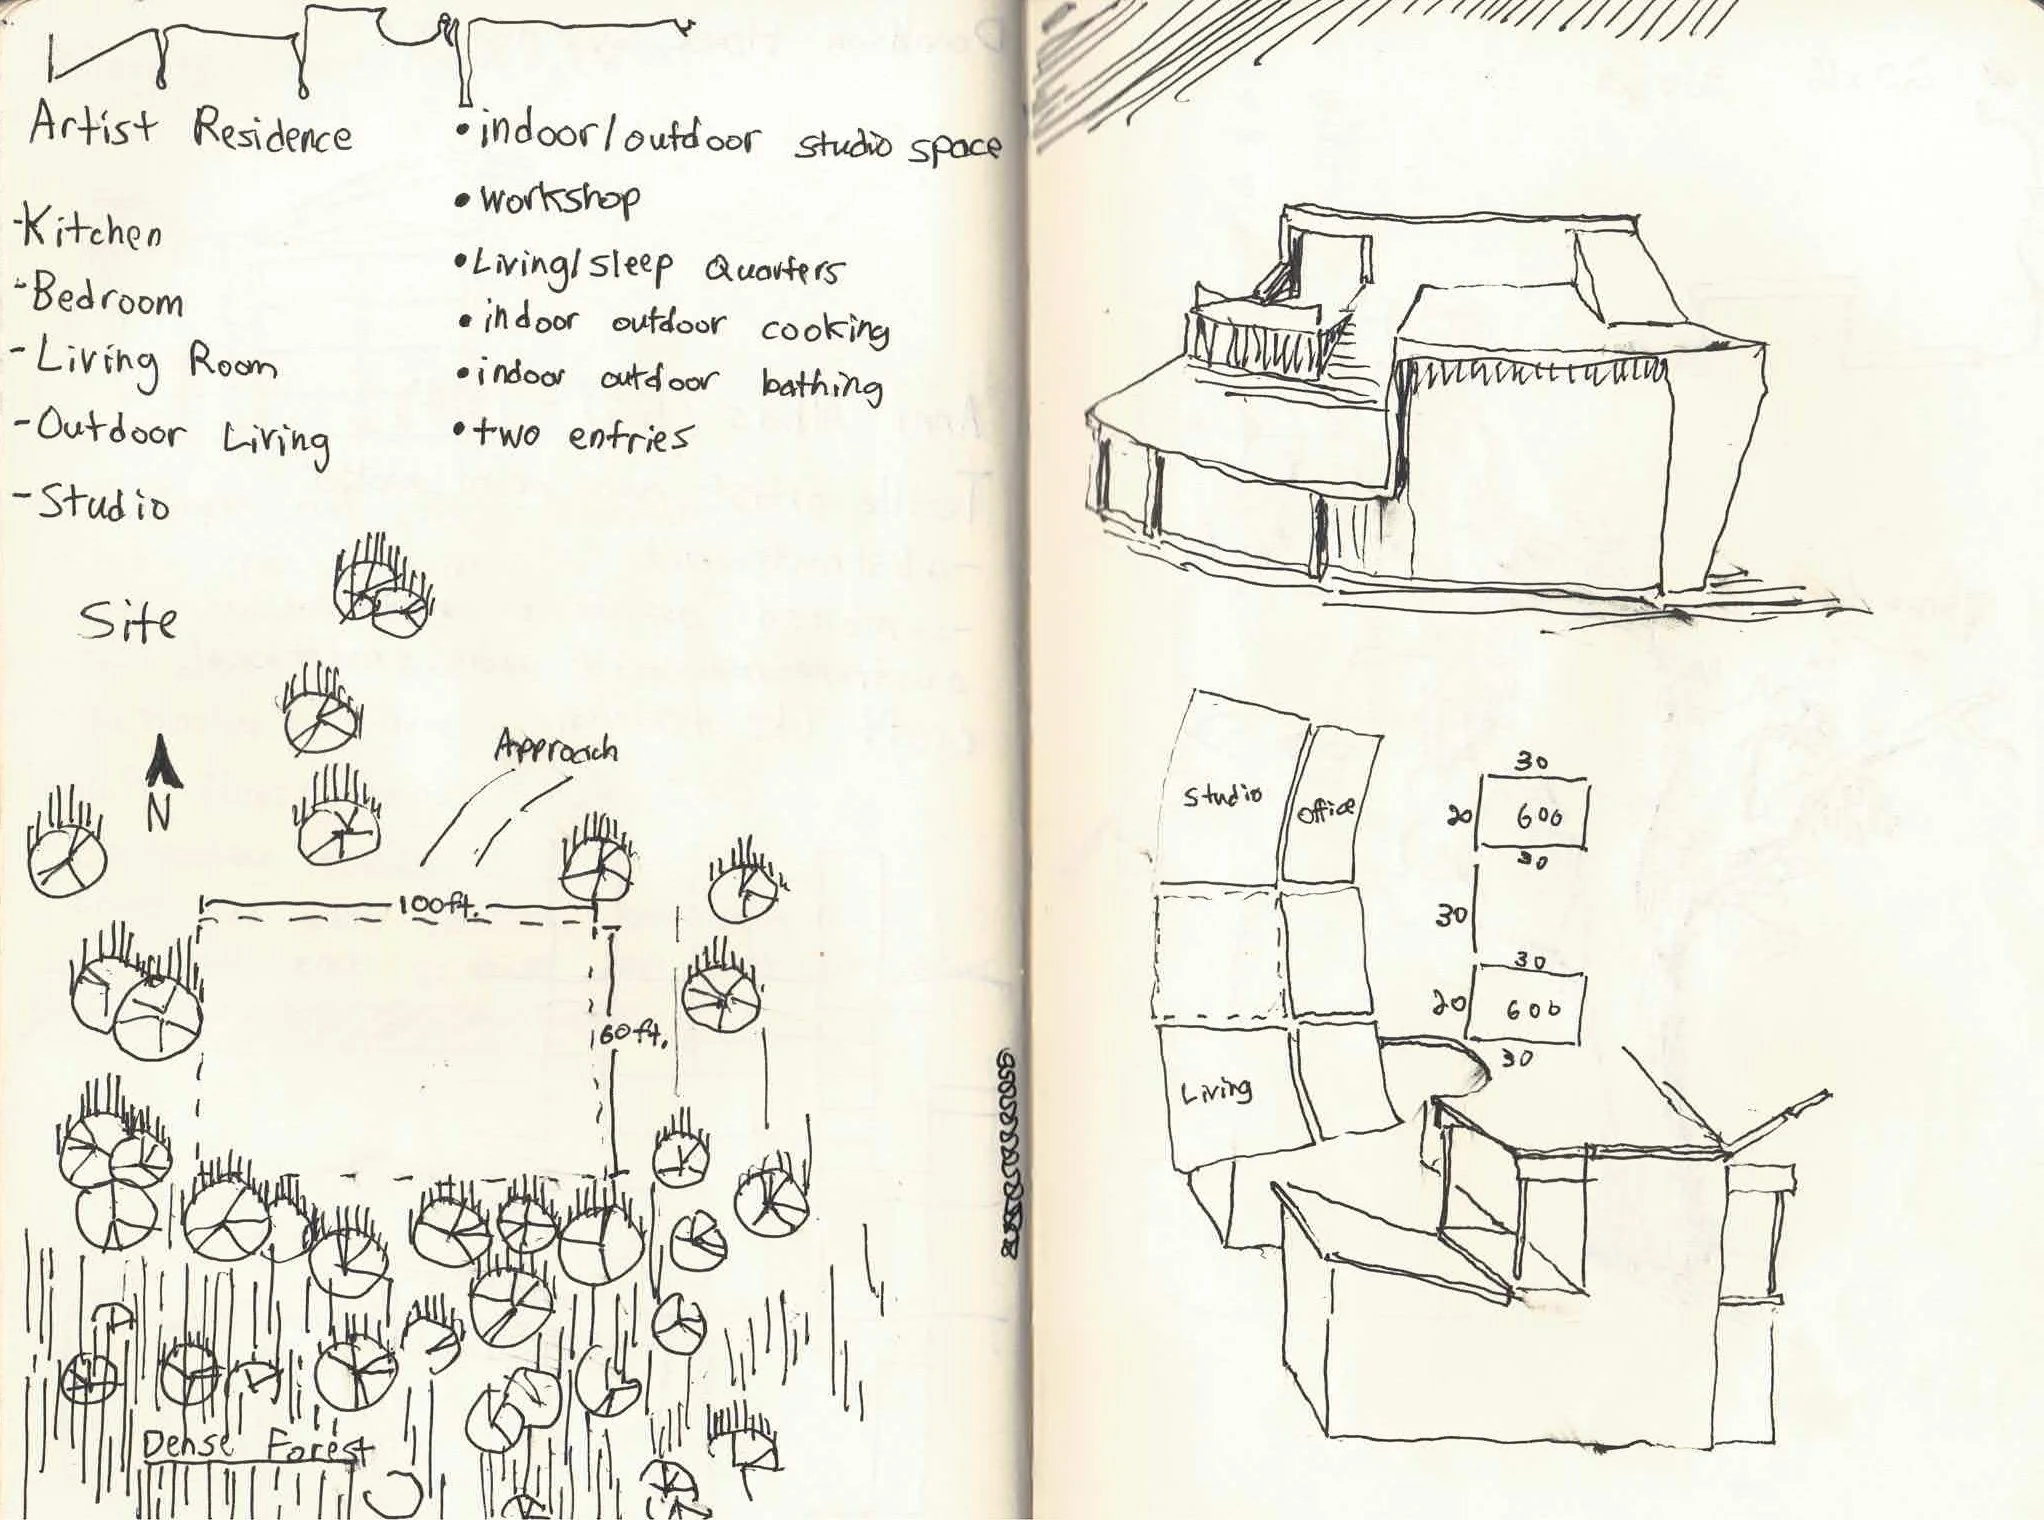 Artist Residence
-Kitchen
-Bedroom
-Living Room
-Outdoor Living
-Studio
•indoor/outdoor studio space
•workshop
•Living/sleep Quarters
•indoor outdoor cooking
•indoor outdoor bathing
•two entries
Site
N
Approach
100ft.
60ft.
Dense Forest
Studio
Office
Living
30
20
600
30
30
30
20
600
30